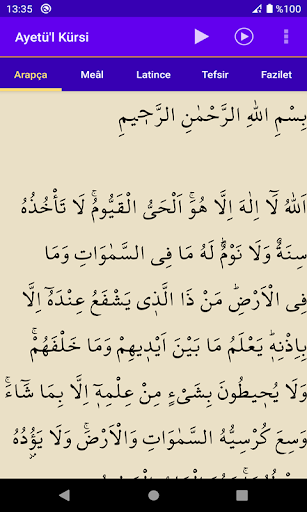 13:35 %100
Ayetü'l Kürsi
Arapça Meâl Latince Tefsir Fazilet
بِسْمِ اللهِ الرَّحْمٰنِ الرَّح۪يمِ
اَللهُ لَٓا اِلٰهَ اِلَّا هُوَۚ اَلْحَيُّ الْقَيُّومُۚ لَا تَأْخُذُهُ
سِنَةٌ وَلَا نَوْمٌۜ لَهُ مَا فِى السَّمٰوَاتِ وَمَا
فِى الْاَرْضِۜ مَنْ ذَا الَّذ۪ى يَشْفَعُ عِنْدَهُٓ اِلَّا
بِاِذْنِه۪ۜ يَعْلَمُ مَا بَيْنَ اَيْد۪يهِمْ وَمَا خَلْفَهُمْۚ
وَلَا يُح۪يطُونَ بِشَىْءٍ مِنْ عِلْمِه۪ٓ اِلَّا بِمَا شَٓاءَۚ
وَسِعَ كُرْسِيُّهُ السَّمٰوَاتِ وَالْاَرْضَۚ وَلَا يَؤُ۫دُهُ